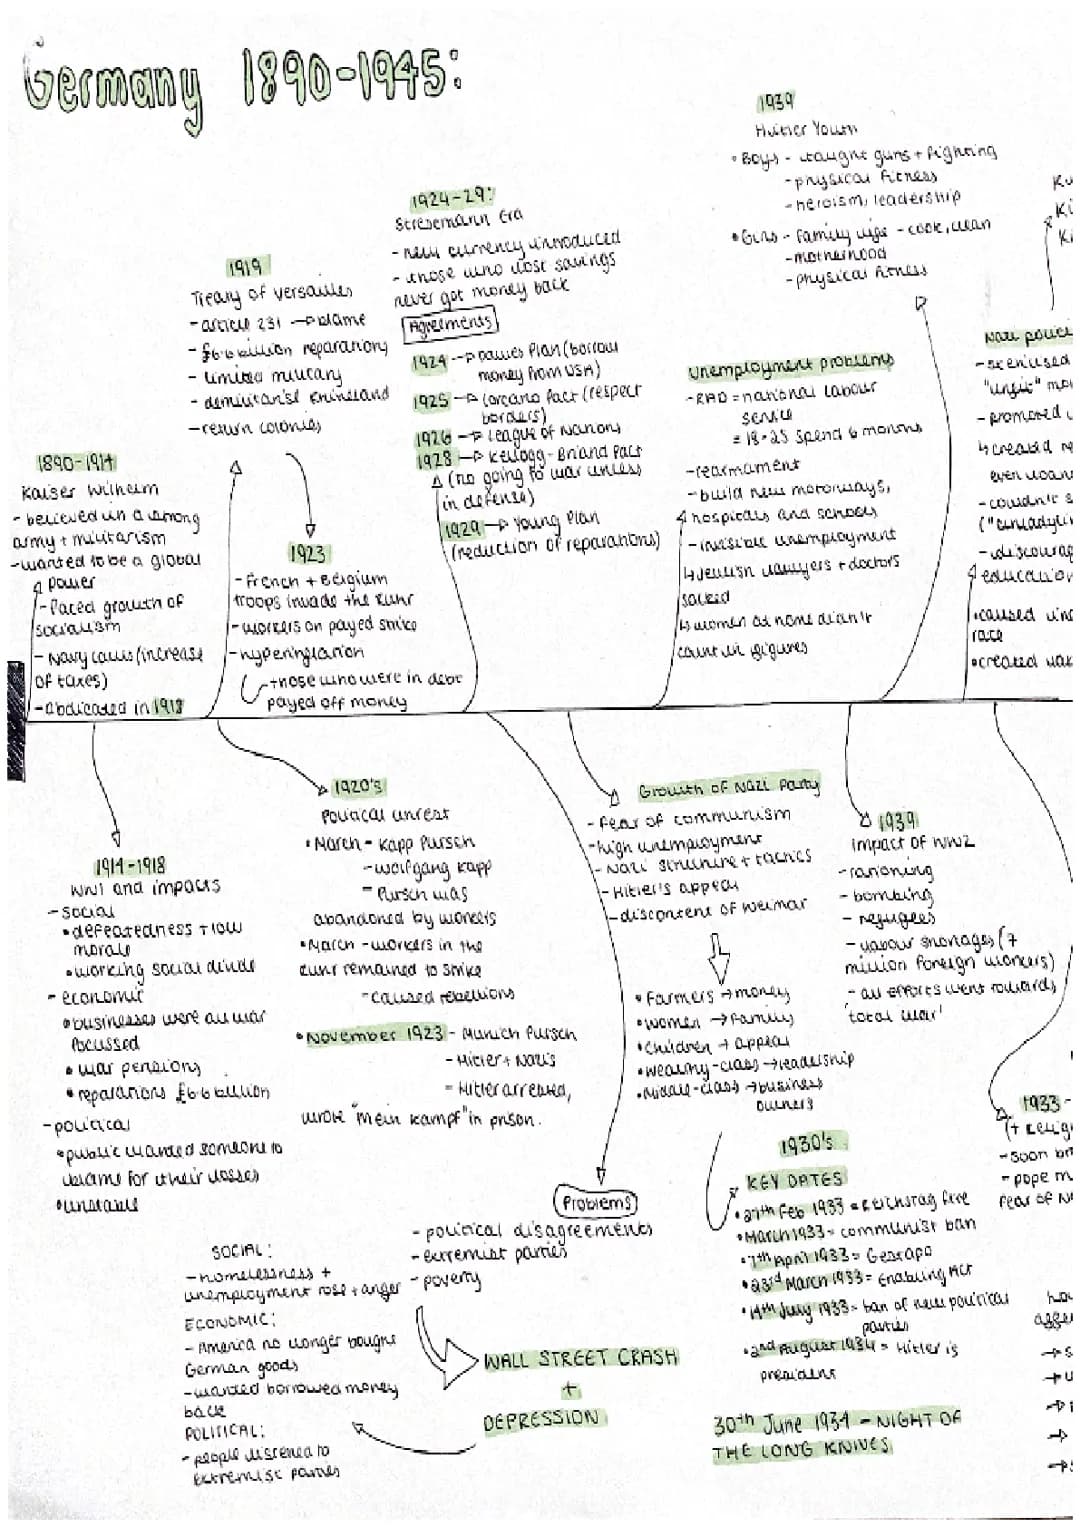 Germany 1890-1945:
1939
Hitler Youth
• Boys - taught guns + fighting
- physical fitness
- heroism, leadership
• Girls - family life - cook, clean
- motherhood
- physical fitness
1924-29:
Stresemann Era
- new currency introduced
- those who lost savings
never got money back
Agreements
1924 → Dawes Plan (borrow
money from USA)
1925 → Locarno Pact (respect
borders)
1926 → League of Nations
1928 → Kellogg-Briand Pact
(no going to war unless
in defense)
1929 → Young Plan
(reduction of reparations)
1919
Treaty of Versailles
- article 231 → blame
- £6.6 billion reparations
- limited military
- demilitarise Rhineland
- return colonies
Unemployment problems
- RAD = national labour
service
= 18-25 spend 6 months
- rearmament
- build new motorways,
hospitals and schools
- invisible unemployment
↳ Jewish lawyers + doctors
sacked
↳ women at home didn't
count in figures
Nazi police
- sterilised
"unfit"
- promoted
↳ created
even
- couldn't
- discourag
education
• caused
race
• created
1890-1914
Kaiser Wilhelm
- believed in a strong
army + militarism
- wanted to be a global
power
- faced growth of
socialism
- Navy Laws (increase
of taxes)
- abdicated in 1918
1923
- French + Belgium
troops invade the Ruhr
- workers on payed strike
- hyperinflation
- those who were in debt
payed off money
1914-1918
WW1 and impacts
- social
• defeatedness + low
morale
• working social divide
- economic
• businesses were all war
focussed
• war pensions
• reparations £6.6 billion
- political
• public wanted someone to
blame for their losses
• unstable
1920's
Political unrest
• March - Kapp Putsch
- Wolfgang Kapp
- Putsch was
abandoned by workers
• March - workers in the
Ruhr remained to strike
- caused rebellions
• November 1923 - Munich Putsch
- Hitler + Nazi's
- Hitler arrested,
wrote "mein kampf" in prison.
Growth of Nazi Party
- fear of communism
- high unemployment
- Nazi structure + tactics
- Hitler's appeal
- discontent of Weimar
• Farmers → money
• Women → Family
• Children → appeal
• Wealthy-class → leadership
• Middle-class → business
owners
1939
Impact of WW2
- rationing
- bombing
- refugees
- labour shortages (7
million foreign workers)
- all efforts went towards
'total war'
1933 -
- soon
- pope
fear of
1930's
KEY DATES
• 27th Feb 1933 = Reichstag fire
• March 1933 = communist ban
• 7th April 1933 = Gestapo
• 23rd March 1933 = Enabling Act
• 14th July 1933 = ban of new political
parties
• 2nd August 1934 = Hitler is
president
30th June 1934 - NIGHT OF
THE LONG KNIVES
Problems
- political disagreements
- extremist parties
- poverty
WALL STREET CRASH
+
DEPRESSION
SOCIAL:
- homelessness +
unemployment rose + anger
ECONOMIC:
- America no longer bought
German goods
- wanted borrowed money
back
POLITICAL:
- people listened to
extremist parties